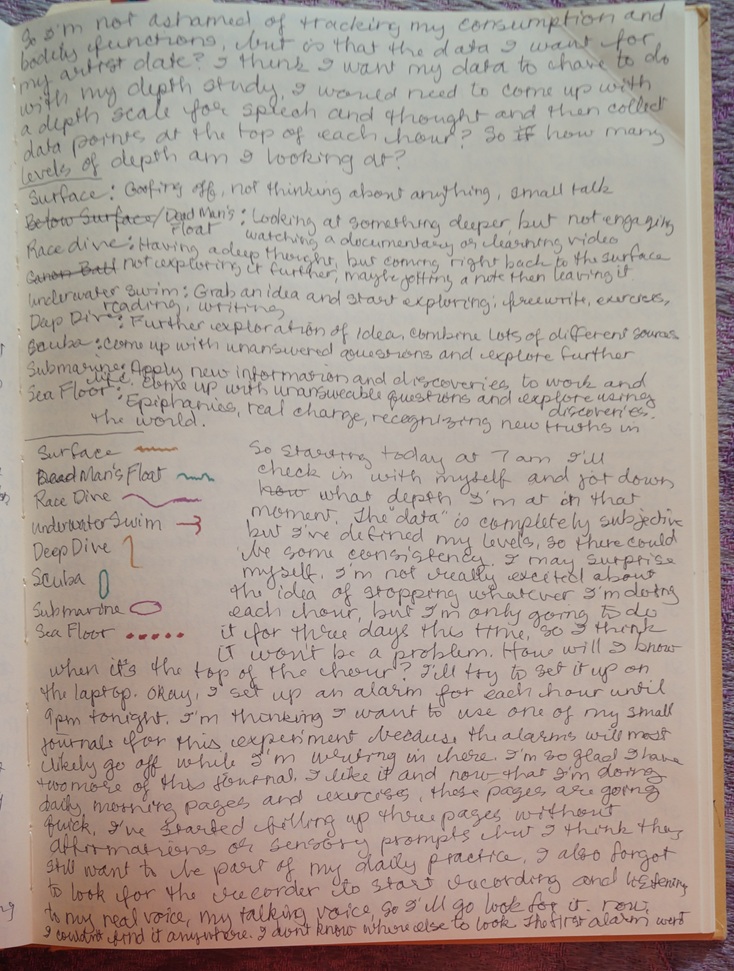 So I'm not ashamed of tracking my consumption and
bodily functions, but is that the data I want for
my artist date? I think I want my data to have to do
with my depth study. I would need to come up with
a depth scale for speech and thought and then collect
data points at the top of each hour? So If how many
levels of depth am I looking at?
Surface: Goofing off, not thinking about anything, small talk
Below Surface/Dead Man's Float: Looking at something deeper, but not engaging
watching a documentary or learning video
Race dive: Having a deep thought, but coming right back to the surface
Canon Ball not exploring it further, maybe jotting a note then leaving it
underwater swim: Grab an idea and start exploring; freewrite, exercises,
reading, writing
Deep Dive: Further exploration of idea, combine lots of different sources
Scuba: come up with unanswered questions and explore further
Submarine: Apply new information and discoveries to work and
life. Come up with unanswerable questions and explore using
discoveries.
Sea Floor: Epiphanies, real change, recognizing new truths in
the world.
Surface
Dead Man's Float
Race Dive
underwater Swim
Deep Dive
Scuba
Submarine
Sea Floor
So starting today at 7am I'll
check in with myself and jot down
how what depth I'm at in that
moment. The "data" is completely subjective
but I've defined my levels, so there could
be some consistency. I may surprise
myself. I'm not really excited about
the idea of stopping whatever I'm doing
each hour, but I'm only going to do
it for three days this time, so I think
it won't be a problem. How will I know
when it's the top of the hour? I'll try to set it up on
the laptop. Okay, I set up an alarm for each hour until
9pm tonight. I'm thinking I want to use one of my small
journals for this experiment because the alarms will most
likely go off while I'm writing in here. I'm so glad I have
two more of this journal. I like it and now that I'm doing
daily, morning pages and exercises, these pages are going
quick. I've started filling up three pages without
affirmations or sensory prompts but I think they
still want to be part of my daily practice. I also forgot
to look for the recorder to start recording and listening
to my real voice, my talking voice, so I'll go look for it now.
I couldn't find it anywhere. I don't know where else to look. The first alarm went